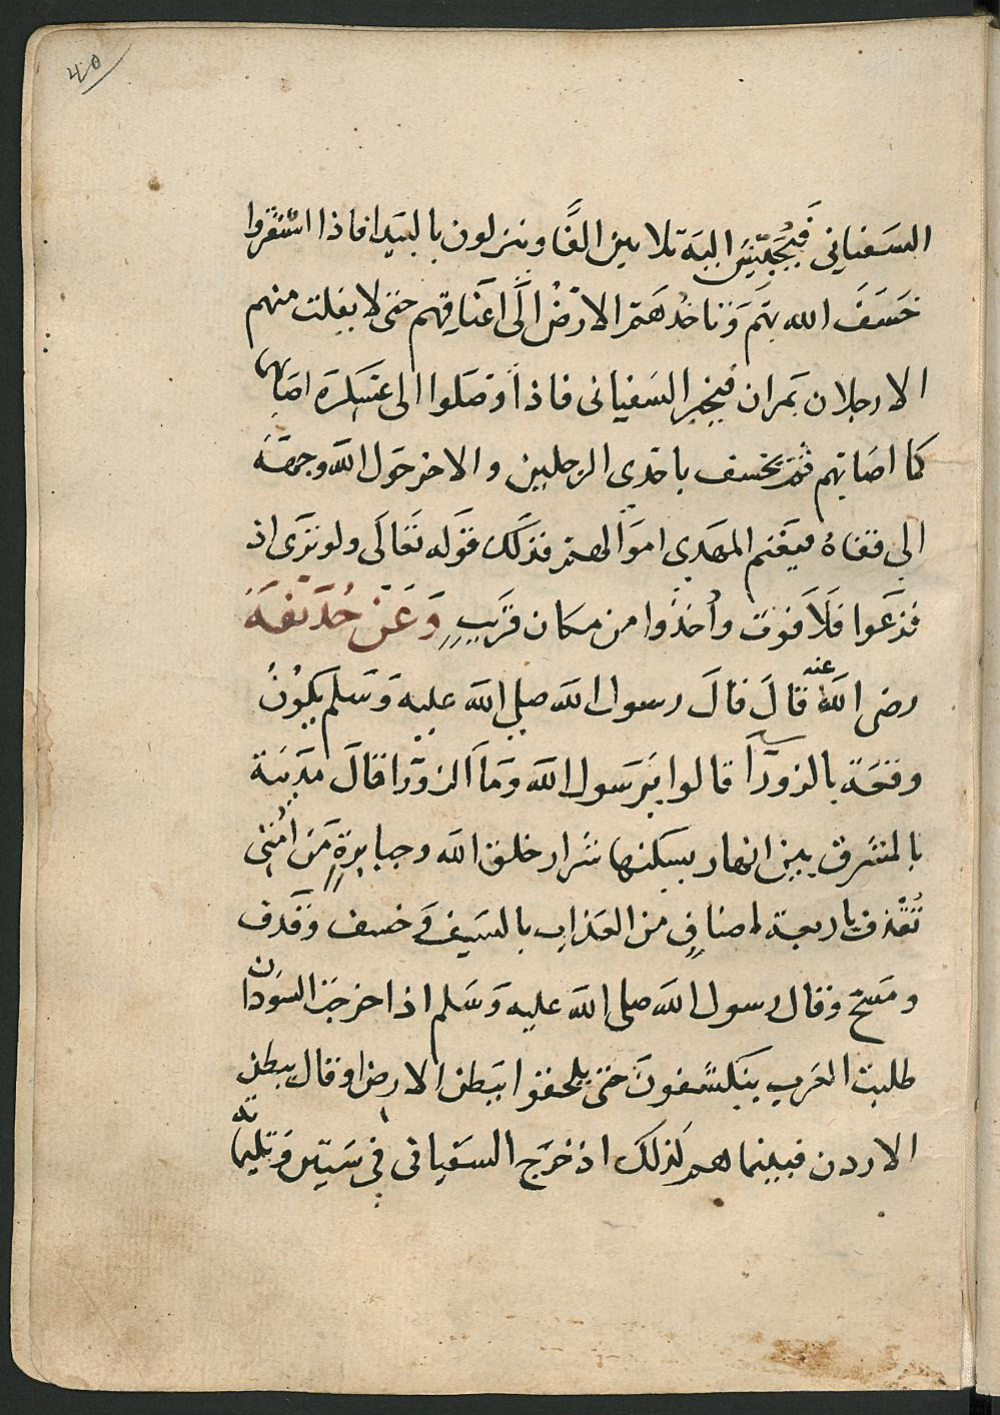 40
السفياني فَيُجَيّشَ اليه ثلاثين الفًا وينزلون بالبيدا فاذا استقروا
خَسَفَ الله بهم وتاخذهم الارضُ الى اعناقهم حتى لا يفلت منهم
الا رجلان يمران فيخبر السفيانى فاذا وصلوا الى عسكره اصابهما
كما اصابهم ثم يخسف باحدى الرجلين والاخر حول الله وجهه
الي قفاهُ فيغنم المهدي اموالهم فذلك قوله تعالى ولو ترى اذ
فزعوا فَلَا فوت وأُخذوا من مكان قريبٍ وَعَنْ حُذَيفَةَ
رضى الله عنه قالَ قالَ رسول الله صلي الله عليه وسلم يكونُ
وقعة بالزورا قالوا يرسول الله وما الزورا قال مدينة
بالمشرق بين انهار يسكنها شرار خلق الله وجبابرةٍ من امُتى
تُقذف باربعة اصنافٍ من العذاب بالسيف وخسف وقذف
ومسخ وقال رسول الله صلى الله عليه وسلم اذا خرجت السودان
طلبت العرب ينكشفونَ حتى يلحقوا ببطن الارض او قال ببطن
الاردن فبينما هم كذلك اذ خرج السفيانى في ستين وثلثمائة